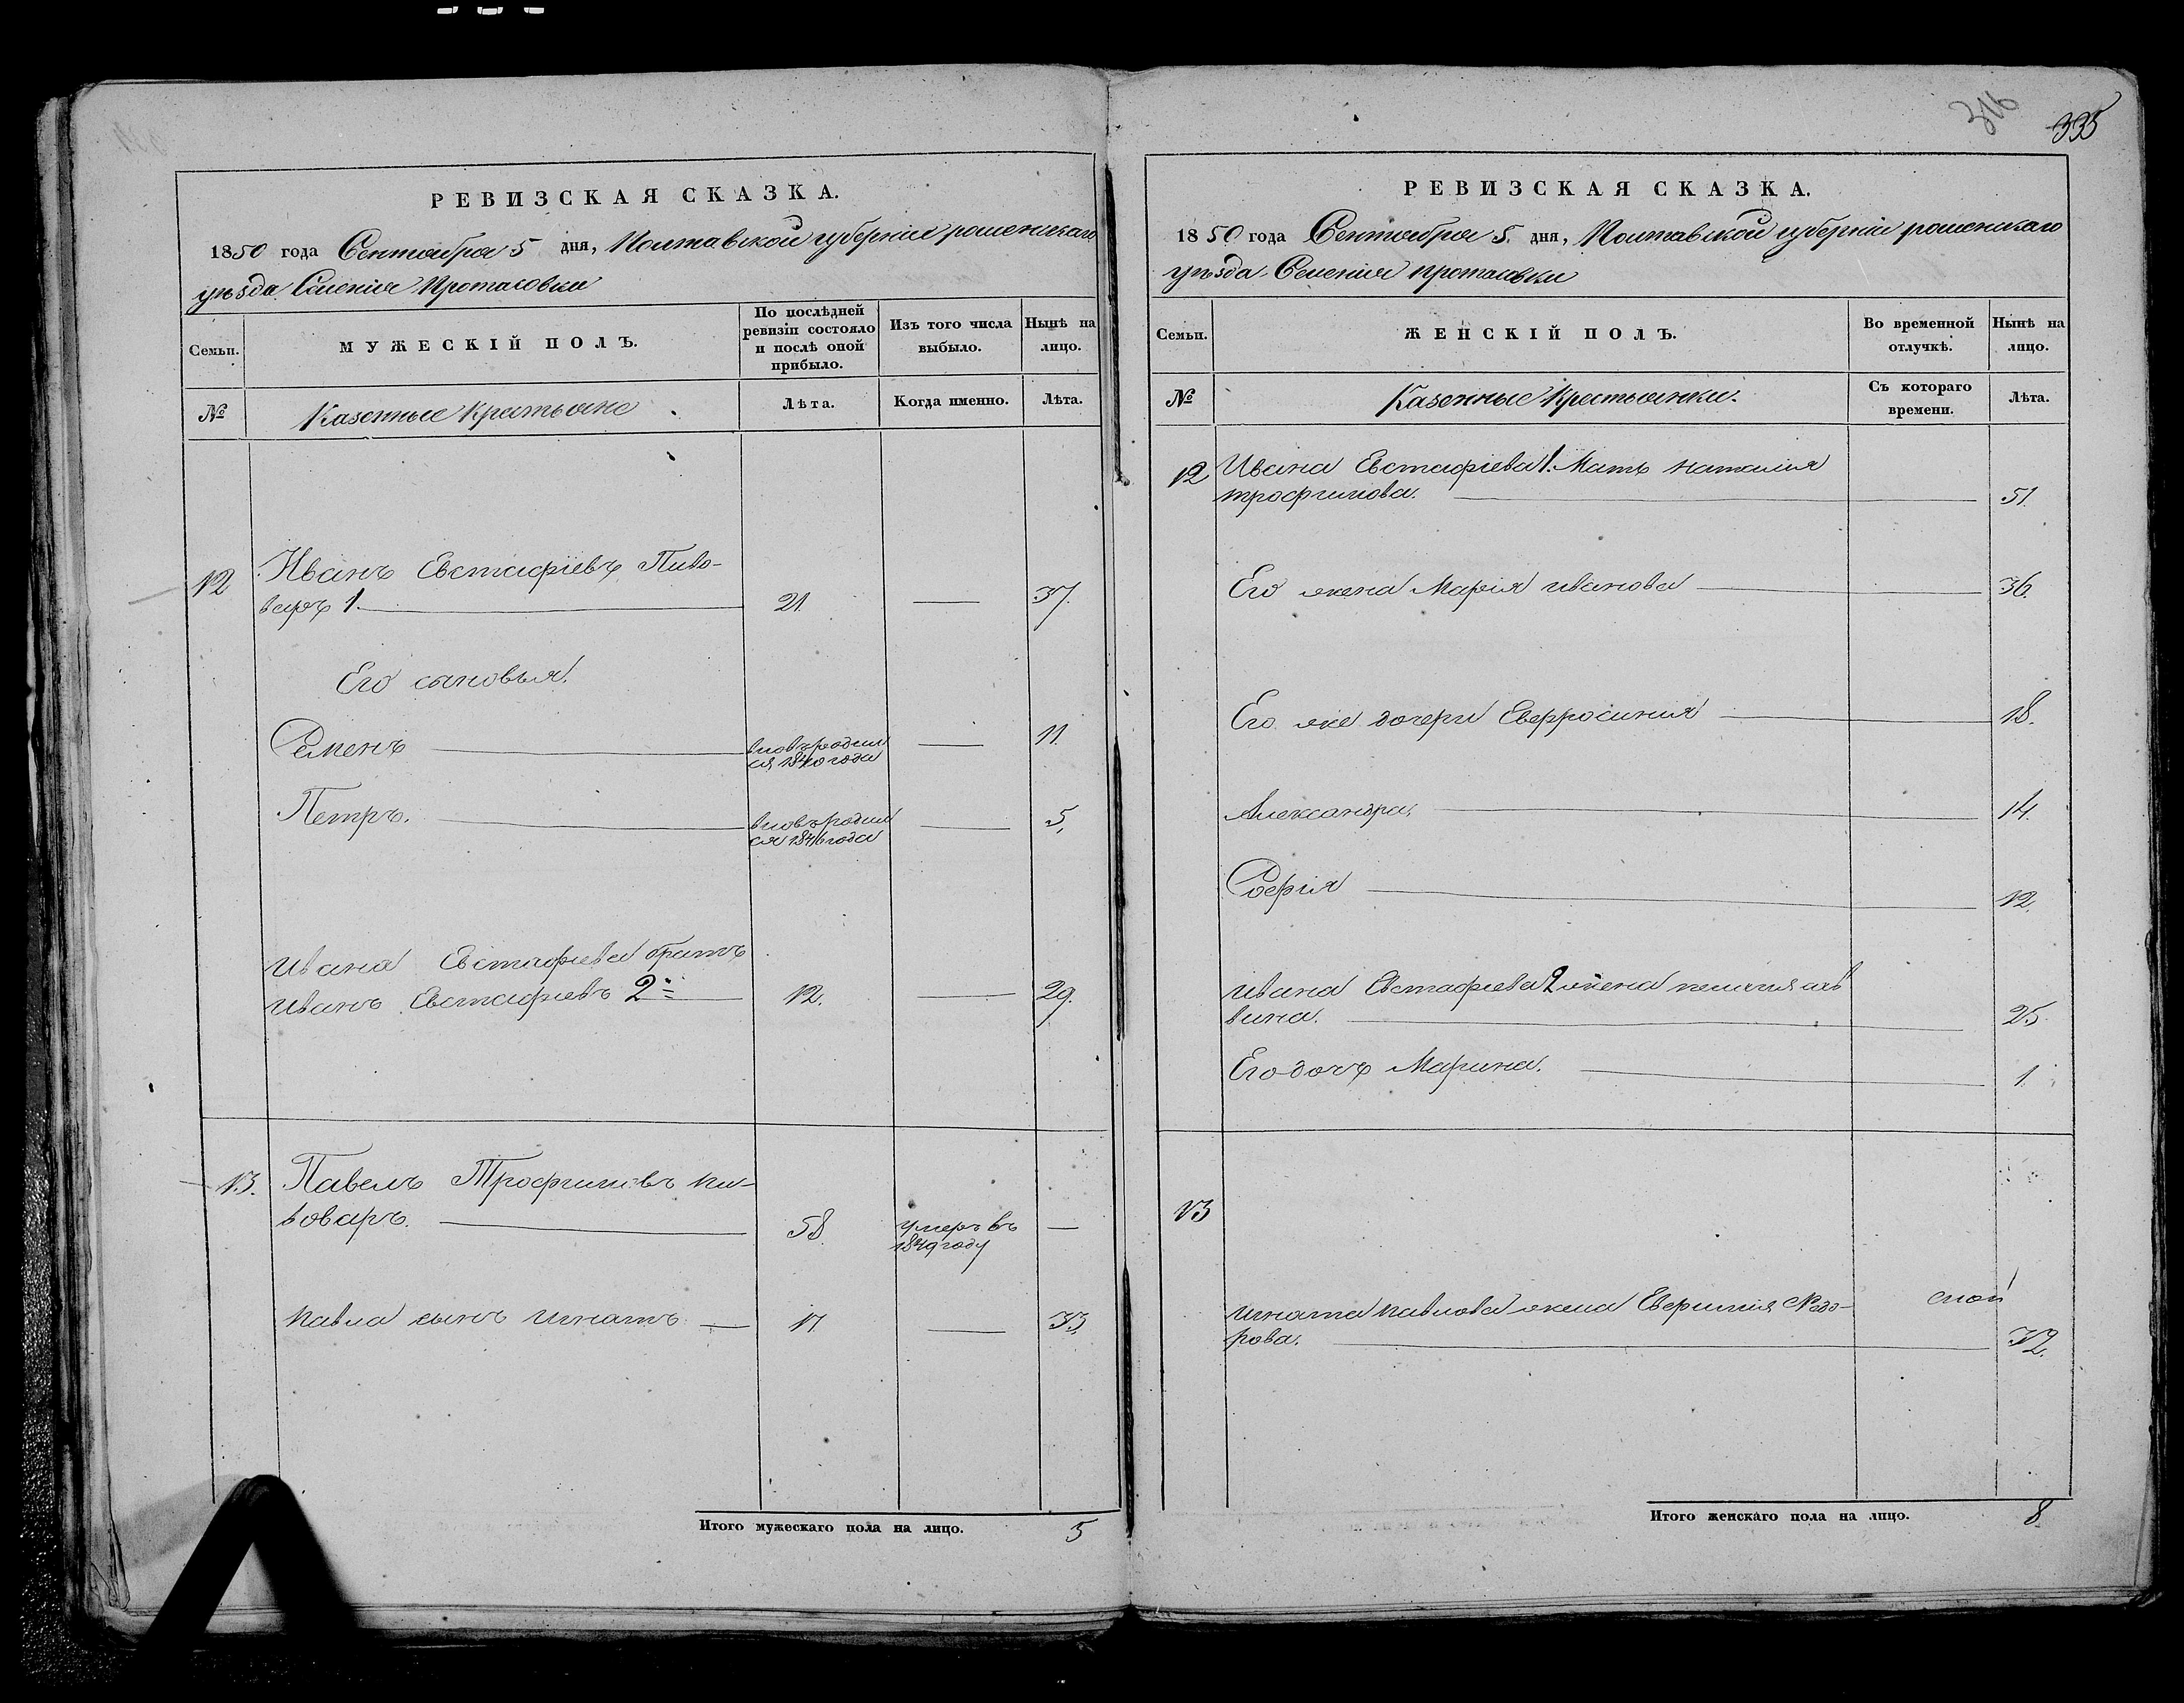 РЕВИЗСКАЯ СКАЗКА.
1850 года Сентября 5 дня, Полтавской губерніи роменскаго
уѣзда Селенія Протасовки
Семьи.
МУЖЕСКІЙ ПОЛЪ.
По послѣдней
ревизіи состояло
и послѣ оной
прибыло.
Изъ того числа
выбыло.
Нынѣ на
лицо.
№
Казенные Крестьяне
Лѣта.
Когда именно.
Лѣта.
12 Иванъ Евстафіевъ Пиво-
варъ 1. 21. 37.
Его сыновья.
Семенъ вновьродил 11.
ся 1840 года
Петръ. вновьродил 5.
ся 1846 года
Ивана Евстафіева братъ
Иванъ Евстафіевъ 2й 12. 29.
13. Павелъ Трофимовъ пи-
воваръ. 58. умеръ въ
1849 году
павла сынъ игнатъ 17 33.
Итого мужескаго пола на лицо. 5
316
335
РЕВИЗСКАЯ СКАЗКА.
1850 года Сентября 5. дня, Полтавской губерніи роменскаго
уѣзда Селенія протасовки
Семьи.
ЖЕНСКІЙ ПОЛЪ.
Во временной
отлучкѣ.
Нынѣ на
лицо.
№
Казенные Крестьянки.
Съ котораго
времени.
Лѣта.
12 Ивана Евстафіева 1. Мать наталія
трофимова. 51.
Его жена Марія иванова 36.
Его же дочери Евфросинія 18.
Александра. 14.
Софія 12.
Ивана Евстафіева 2 жена
вина. 25.
Его дочь Марина. 1.
13
игната павлова жена Евфимія Ѳедо-
рова. 32.
Итого женскаго пола на лицо. 8